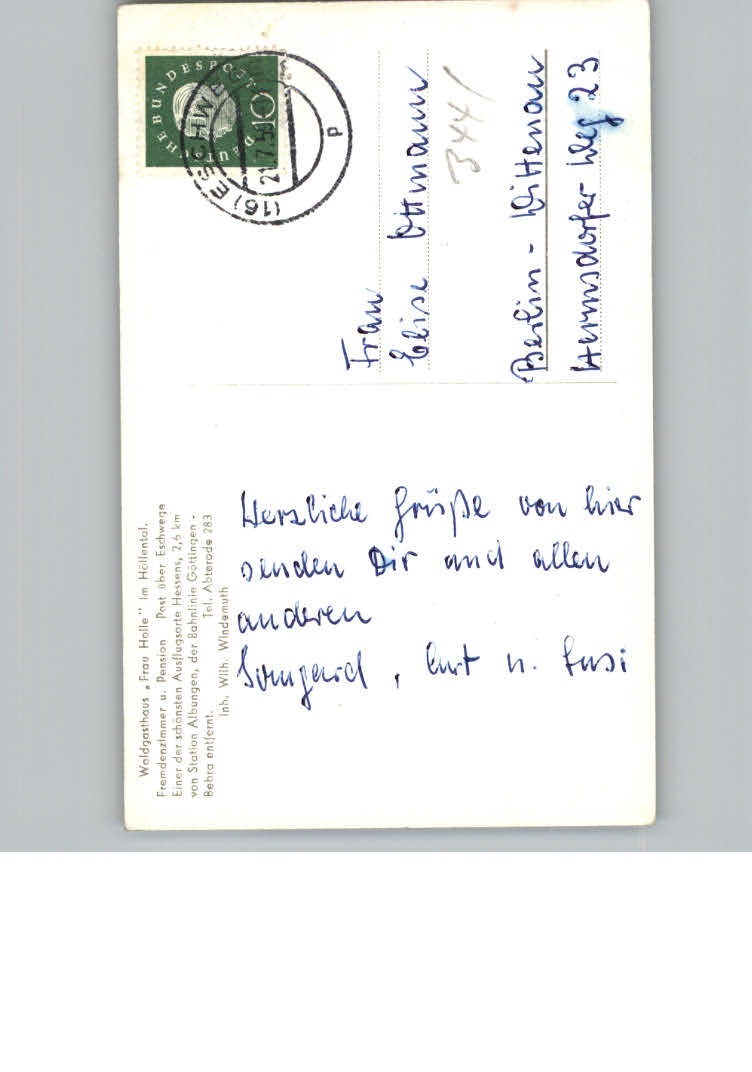 Waldgasthaus „Frau Holle" im Höllental.
Fremdenzimmer u. Pension Post über Eschwege
Einer der schönsten Ausflugsorte Hessens, 2,6 km
von Station Albungen, der Bahnlinie Göttingen -
Bebra entfernt. Tel. Abterode 283
Inh. Wilh. Windemuth
Herzliche Grüße von hier
senden Dir und allen
anderen
Irmgard, Curt u. Susi
DEUTSCHE BUNDESPOST
10
(16) ESCHWEGE
21.7.59
p
Frau
Elise Ottmann
344/
Berlin - Wittenau
Hermsdorfer Weg 23